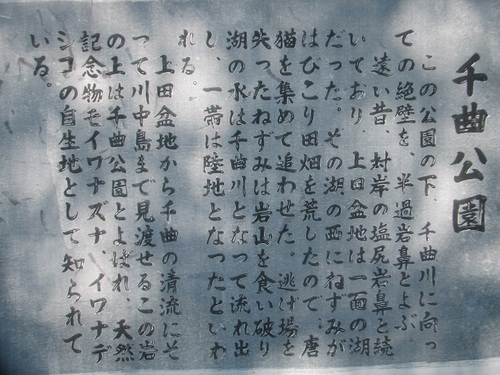 千曲公園
この公園の下 千曲川に向っ
ての絶壁を、半過岩鼻とよぶ
遠い昔、対岸の塩尻岩鼻と続
いており、上田盆地は一面の湖
だった。その湖の西にねずみが
はびこり田畑を荒したので、唐
猫を集めて追わせた。逃げ場を
失ったねずみは岩山を食い破り
湖の水は千曲川となって流れ出
し、一帯は陸地となったといわ
れる。
上田盆地から千曲の清流にそ
って川中島まで見渡せるこの岩
の上は千曲公園とよばれ、天然
記念物モイワナズナ イワナデ
シコの自生地として知られて
いる。